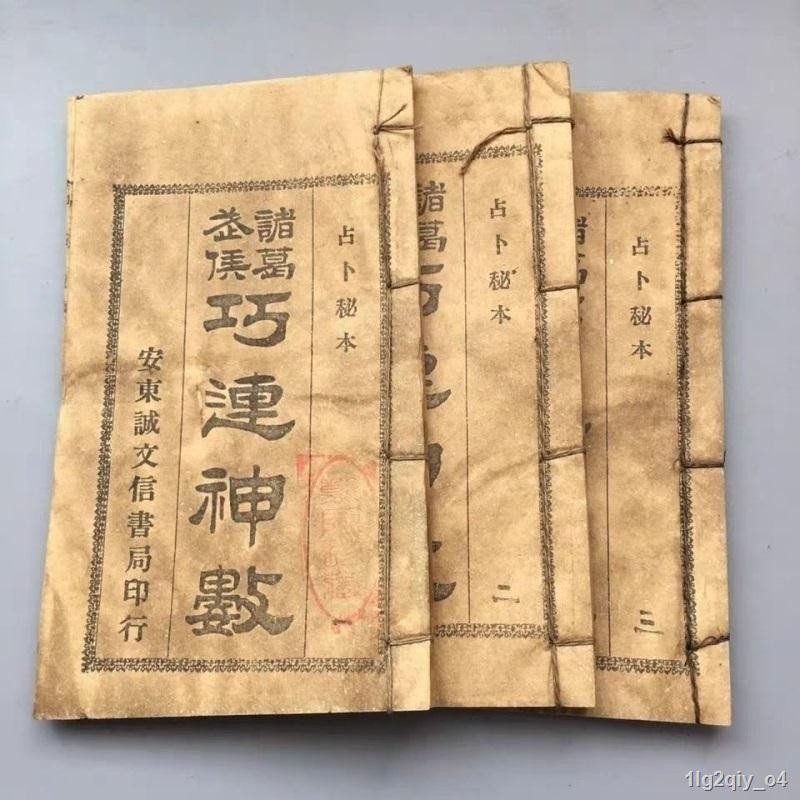 占卜秘本
一
諸葛
武侯
巧連神數
安東誠文信書局印行
占卜秘本
二
諸葛
占卜秘本
三
1lg2qiy_o4